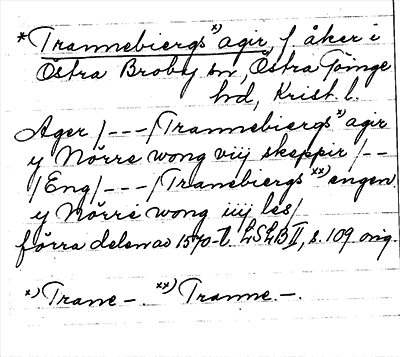 *Trannebiergs x) agir, f åker i
Östra Broby sn, Östra Göinge
hd, Krist. l.
Ager /---/ Trannebiergs x) agir
y Nörre wong viij skeppir /--
/Eng/---/ Tranebiergs xx) engen
y Nörre wong iiij les/
förra delen av 1570-t. LSLB II, s. 109 orig.
x) Trane-. xx) Tranne.-.